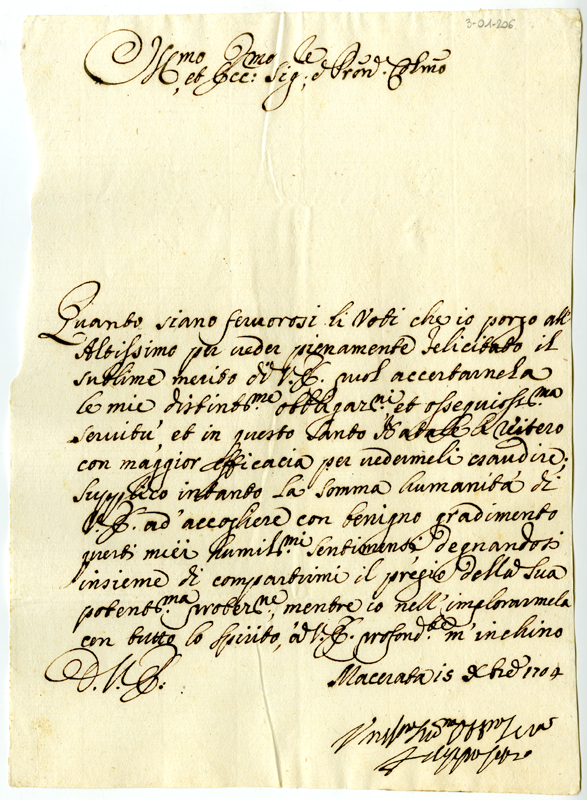 3-01-206
Ill.mo
et Ecc: Sig.re e Pron. Colmo
Quanto siano feruorosi li Voti che io porgo all'
Altissimo per ueder pienamente felicitato il
sublime merito di V. E. uol accertarnela
le mie distint.me obbligaz.ni, et ossequiosiss.ma
seruitù, et in questo Santo Natale li reitero
con maggior efficacia per uedermeli esaudire;
supplico intanto la somma humanità di
V. E. ad' accogliere con benigno gradimento
questi miei humil.mi sentimenti degnandosi
insieme di compartirmi il pregio della sua
potent.ma protez.ne, mentre io nell' implorarmela
con tutto lo spirito, à V. E. profond.te m' inchino
D. V. E.
Macerata 15 Xbre 1704